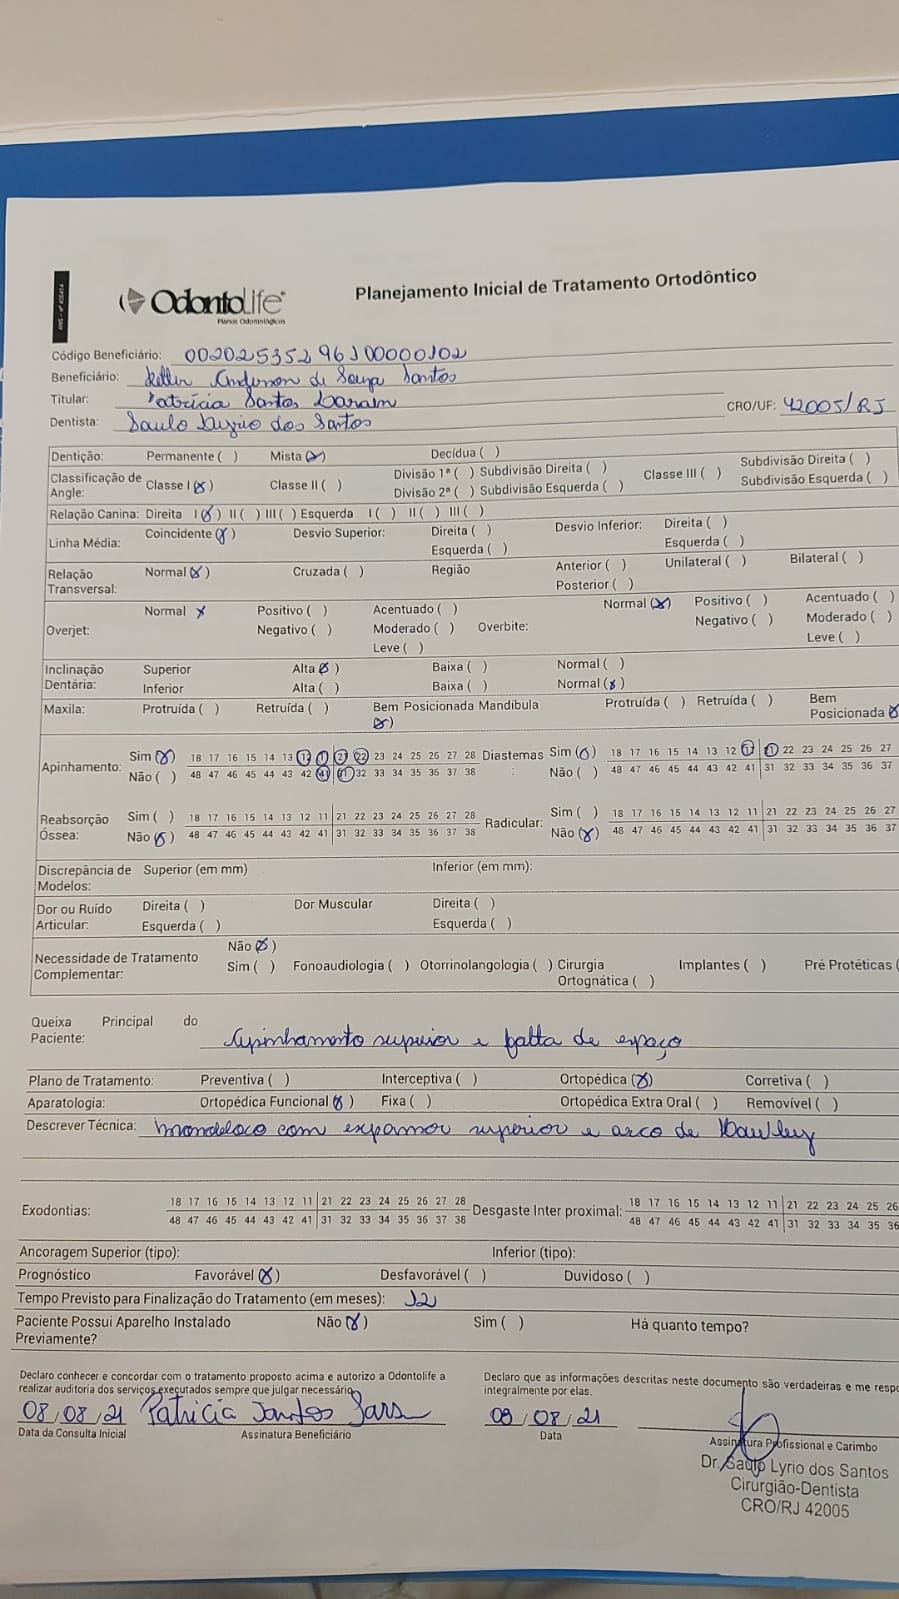 ANS - nº 406414
OdontoLife
Planos Odontológicos
Planejamento Inicial de Tratamento Ortodôntico
Código Beneficiário: 00202535296100000102
Beneficiário: Anderson de Souza Santos
Titular: Patrícia Santos
Dentista: Saulo Lyrio dos Santos CRO/UF: 42005/RJ
Dentição: Permanente ( ) Mista (x) Decídua ( )
Classificação de Angle: Classe I (x) Classe II ( ) Divisão 1ª ( ) Subdivisão Direita ( ) Divisão 2ª ( ) Subdivisão Esquerda ( ) Classe III ( ) Subdivisão Direita ( ) Subdivisão Esquerda ( )
Relação Canina: Direita I (x) II ( ) III ( ) Esquerda I ( ) II ( ) III ( )
Linha Média: Coincidente (x) Desvio Superior: Direita ( ) Esquerda ( ) Desvio Inferior: Direita ( ) Esquerda ( )
Relação Transversal: Normal (x) Cruzada ( ) Região Anterior ( ) Posterior ( ) Unilateral ( ) Bilateral ( )
Overjet: Normal x Positivo ( ) Negativo ( ) Acentuado ( ) Moderado ( ) Leve ( ) Overbite: Normal (x) Positivo ( ) Negativo ( ) Acentuado ( ) Moderado ( ) Leve ( )
Inclinação Dentária: Superior Alta (x) Baixa ( ) Normal ( )
Inferior Alta ( ) Baixa ( ) Normal (x)
Maxila: Protruída ( ) Retruída ( ) Bem Posicionada (x) Mandíbula Protruída ( ) Retruída ( ) Bem Posicionada (x
Apinhamento: Sim (x) 18 17 16 15 14 13 12 11 21 22 23 24 25 26 27 28 Diastemas : Sim (x) 18 17 16 15 14 13 12 11 21 22 23 24 25 26 27
Não ( ) 48 47 46 45 44 43 42 41 31 32 33 34 35 36 37 38 Não ( ) 48 47 46 45 44 43 42 41 31 32 33 34 35 36 37
Reabsorção Óssea: Sim ( ) 18 17 16 15 14 13 12 11 21 22 23 24 25 26 27 28 Radicular: Sim ( ) 18 17 16 15 14 13 12 11 21 22 23 24 25 26 27
Não (x) 48 47 46 45 44 43 42 41 31 32 33 34 35 36 37 38 Não (x) 48 47 46 45 44 43 42 41 31 32 33 34 35 36 37
Discrepância de Modelos: Superior (em mm) Inferior (em mm):
Dor ou Ruído Articular: Direita ( ) Esquerda ( ) Dor Muscular Direita ( ) Esquerda ( )
Necessidade de Tratamento Complementar: Não (x) Sim ( ) Fonoaudiologia ( ) Otorrinolangologia ( ) Cirurgia Ortognática ( ) Implantes ( ) Pré Protéticas (
Queixa Principal do Paciente: Apinhamento superior e falta de espaço
Plano de Tratamento: Preventiva ( ) Interceptiva ( ) Ortopédica (x) Corretiva ( )
Aparatologia: Ortopédica Funcional (x) Fixa ( ) Ortopédica Extra Oral ( ) Removível ( )
Descrever Técnica: com expansor superior e arco de Hawley
Exodontias: 18 17 16 15 14 13 12 11 21 22 23 24 25 26 27 28 Desgaste Inter proximal: 18 17 16 15 14 13 12 11 21 22 23 24 25 26
48 47 46 45 44 43 42 41 31 32 33 34 35 36 37 38 48 47 46 45 44 43 42 41 31 32 33 34 35 36
Ancoragem Superior (tipo): Inferior (tipo):
Prognóstico Favorável (x) Desfavorável ( ) Duvidoso ( )
Tempo Previsto para Finalização do Tratamento (em meses): 12
Paciente Possui Aparelho Instalado Previamente? Não (x) Sim ( ) Há quanto tempo?
Declaro conhecer e concordar com o tratamento proposto acima e autorizo a Odontolife a
realizar auditoria dos serviços executados sempre que julgar necessário.
08/08/21 Patricia Santos
Data da Consulta Inicial Assinatura Beneficiário
Declaro que as informações descritas neste documento são verdadeiras e me resp
integralmente por elas.
08/08/21
Data Assinatura Profissional e Carimbo
Dr. Saulo Lyrio dos Santos
Cirurgião-Dentista
CRO/RJ 42005